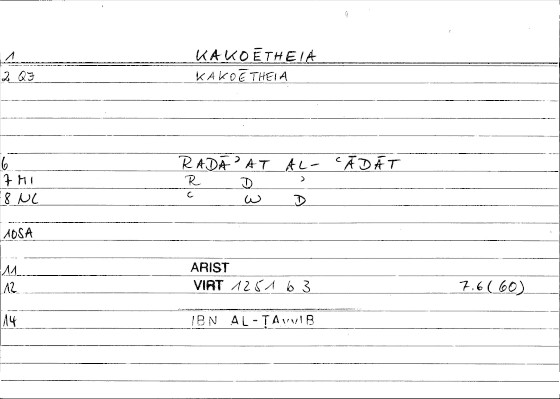 1 KAKOĒTHEIA
2 QJ KAKOĒTHEIA
6 RADĀʾAT AL-ʿĀDĀT
7 MI R D ʾ
8 NL ʿ W D
10SA
11 ARIST
12 VIRT 1251 b 3 7.6(60)
14 IBN AL-ṬAYYIB